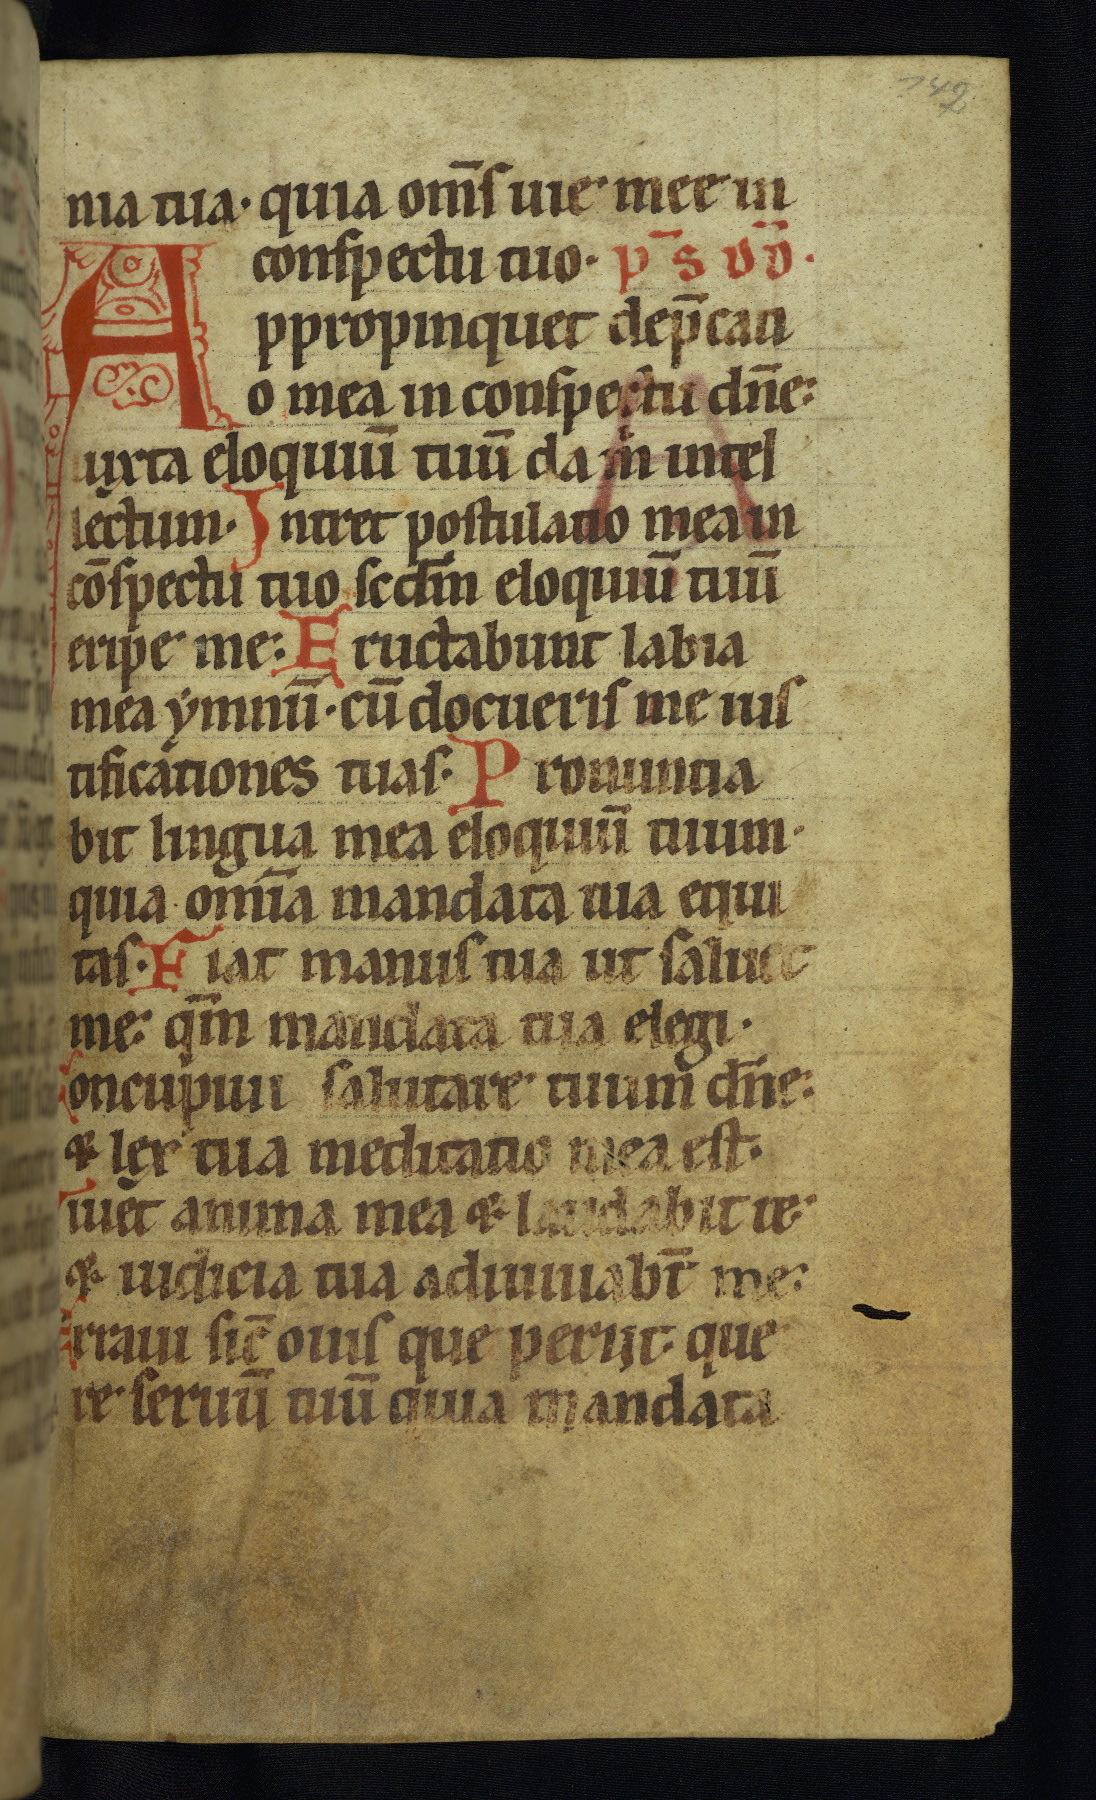 142
nia tua· quia om̅ſ uie mee in
conſpectu tuo· p̅s dd̅·
Appropinquet dep̅cati
o mea in conſpectu dn̅e:
iuxta eloquiu̅ tuu̅ da m̅ intel
lectum· Intret poſtulatio mea in
co̅ſpectu tuo ſcdm̅ eloquiu̅ tuu̅
eripe me: Eructabunt labia
mea ẏmnu̅· cu̅ docueriſ me iuſ
tificationes tuaſ· Pronuntia
bit lingua mea eloquiu̅ tuum·
quia omi̅a mandata tua equi
taſ· Fiat manuſ tua ut ſaluet
me: qm̅ mandata tua elegi·
Concupiui ſalutare tuum dn̅e:
⁊ lex tua meditatio mea eſt·
Uiue̅t anima mea ⁊ laudabit te·
⁊ iudicia tua adiuuabt̅ me:
Erraui ſic̅ ouiſ que perijt· que
re ſeruu̅ tuu̅ quia mandata